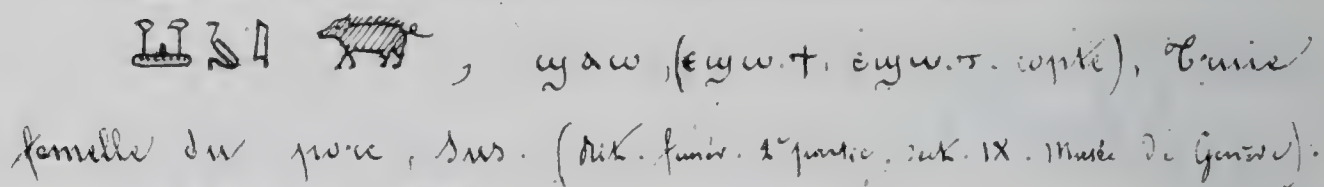 𓆷 𓃟, ϣⲁⲱ, (ⲉϣⲱ. ⲉϣⲱ. copte), Truie
femelle du porc, sus. (Rit. funér. 2e partie. sect. IX. Musée de Genève).